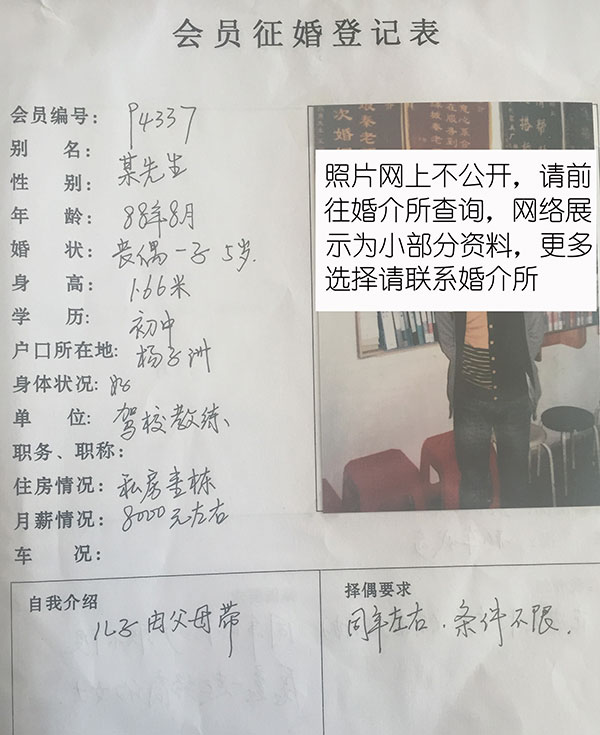 会员征婚登记表
会员编号： P4337
别 名： 某先生
性 别：
年 龄： 88年8月
婚 状： 丧偶一子 5岁.
身 高： 1.66米
学 历： 初中
户口所在地： 杨子洲
身体状况： 好
单 位： 驾校教练
职务、职称：
住房情况： 私房壹栋
月薪情况： 8000元左右
车 况：
照片网上不公开，请前
往婚介所查询，网络展
示为小部分资料，更多
选择请联系婚介所
自我介绍
儿子由父母带
择偶要求
同年左右. 条件不限.